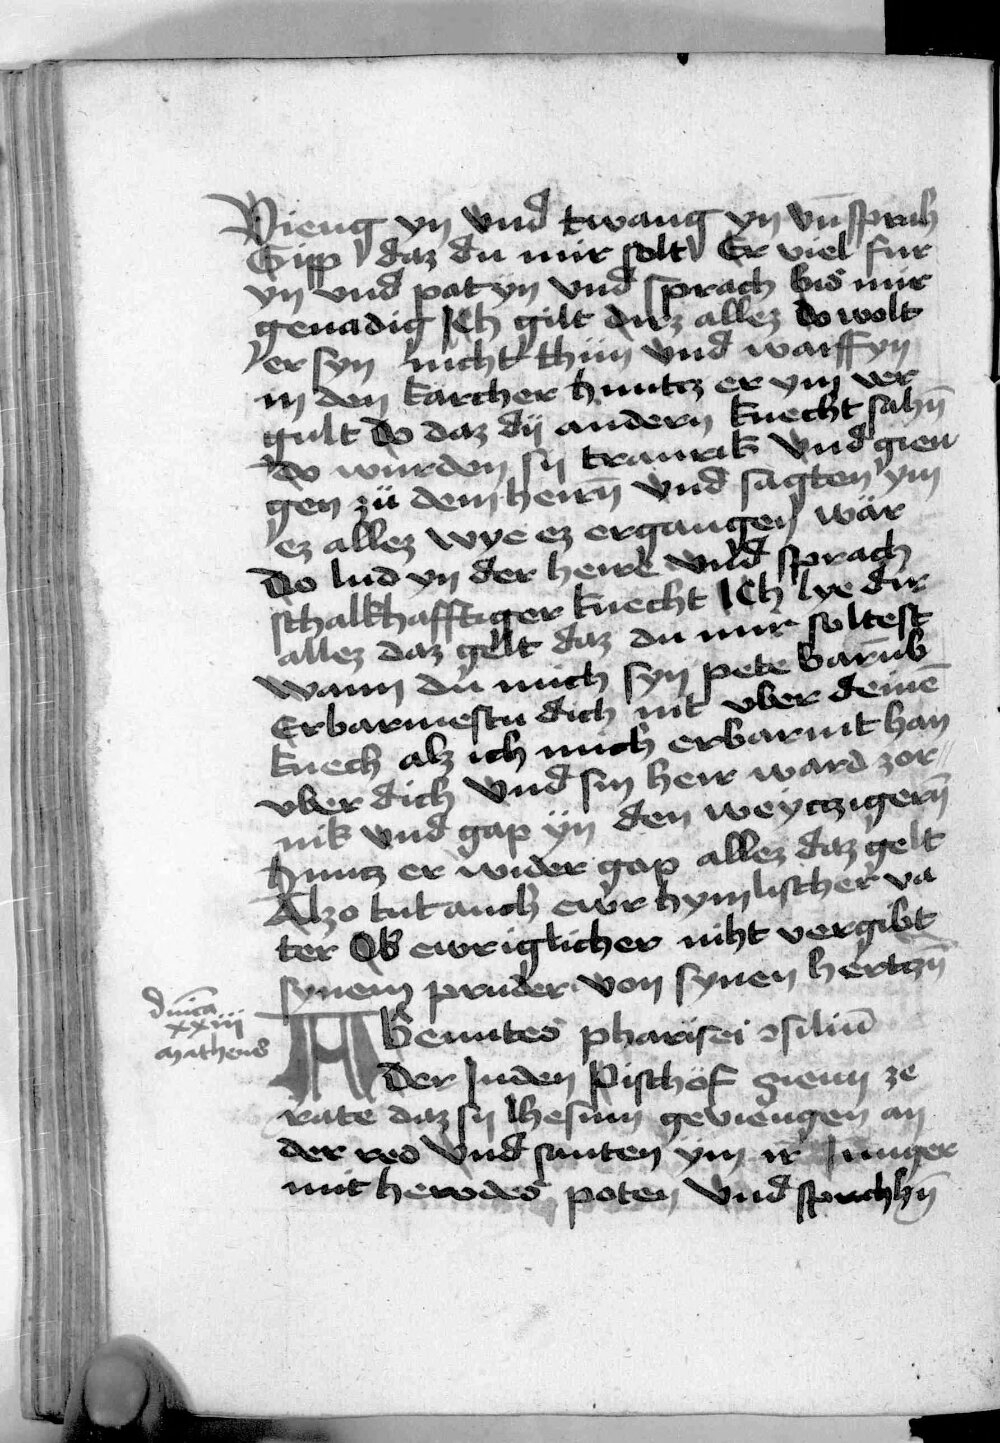 Vieng yn vnd twang yn vn̄ sprah
Gipp daz du mir solt Er viel fur
yn vnd pat ÿn vnd sprach bis mir
genadig Ich gilt dirz allez do wolt
er syn nicht thün vnd warff yn
in den karcher huntz er ym ver
gult Do daz dÿ andern knecht sahn̄
do wurden sy traurik vnd gien
gen zü dem herrn̄ vnd sagten ym
ez allez wye ez ergangen wär
Do lud yn der herre vnd sprach
schalkhafftiger knecht Ich lye dir
allez daz gelt daz du mir soltest
wann du mich syn pete barūb
Erbarmestu dich nit vber deinē
knech alz ich mich erbarmt han
vber dich vnd sin herr ward zor
nik vnd gap ÿn den weyczigern̄
huntz er wider gap allez daz gelt
Alzo tut auch ewr hymlischer va
ter Ob ewr iglicher niht vergibt
synem pruder von synen hertzn̄
dn̄ica
xxiii
matheus
Abeuntes pharisei ↄsiliū
der Juden Pischöf gienn ze
rate daz sy Jhesum geviengen an
der red vnd santen ym ir Junger
mit herodes poten vnd sprachn̄